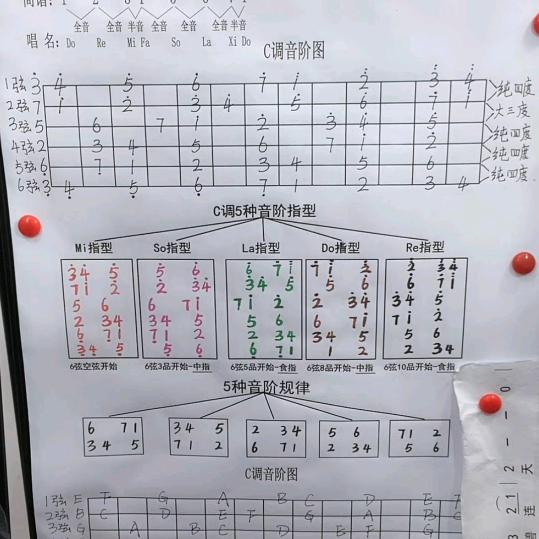 全音 全音 半音 全音 全音 全音 半音
唱名: Do Re Mi Fa So La Xi Do
C调音阶图
1弦 3 4 5 6 7 1 2 3 4 纯四度
2弦 7 1 2 3 4 5 6 7 1 大三度
3弦 5 6 7 1 2 3 4 5 纯四度
4弦 2 3 4 5 6 7 1 2 纯四度
5弦 6 7 1 2 3 4 5 6 纯四度
6弦 3 4 5 6 7 1 2 3 4
C调5种音阶指型
Mi指型 So指型 La指型 Do指型 Re指型
3 4 5 5 6 6 7 1 7 1 2 2 3 4
7 1 2 2 3 4 3 4 5 5 6 6 7 1
5 6 6 7 1 7 1 2 2 3 4 3 4 5
2 3 4 3 4 5 5 6 6 7 1 7 1 2
6 7 1 7 1 2 2 3 4 3 4 5 5 6
3 4 5 5 6 6 7 1 1 2 2 3 4
6弦空弦开始 6弦3品开始-中指 6弦5品开始-食指 6弦8品开始-中指 6弦10品开始-食指
5种音阶规律
6 7 1 3 4 5 2 3 4 5 6 7 1 2
3 4 5 7 1 2 6 7 1 2 3 4 5 6
C调音阶图
1弦 E F G A B C D E F
2弦 B C D E F G A B C
3弦 G A B C D E F G